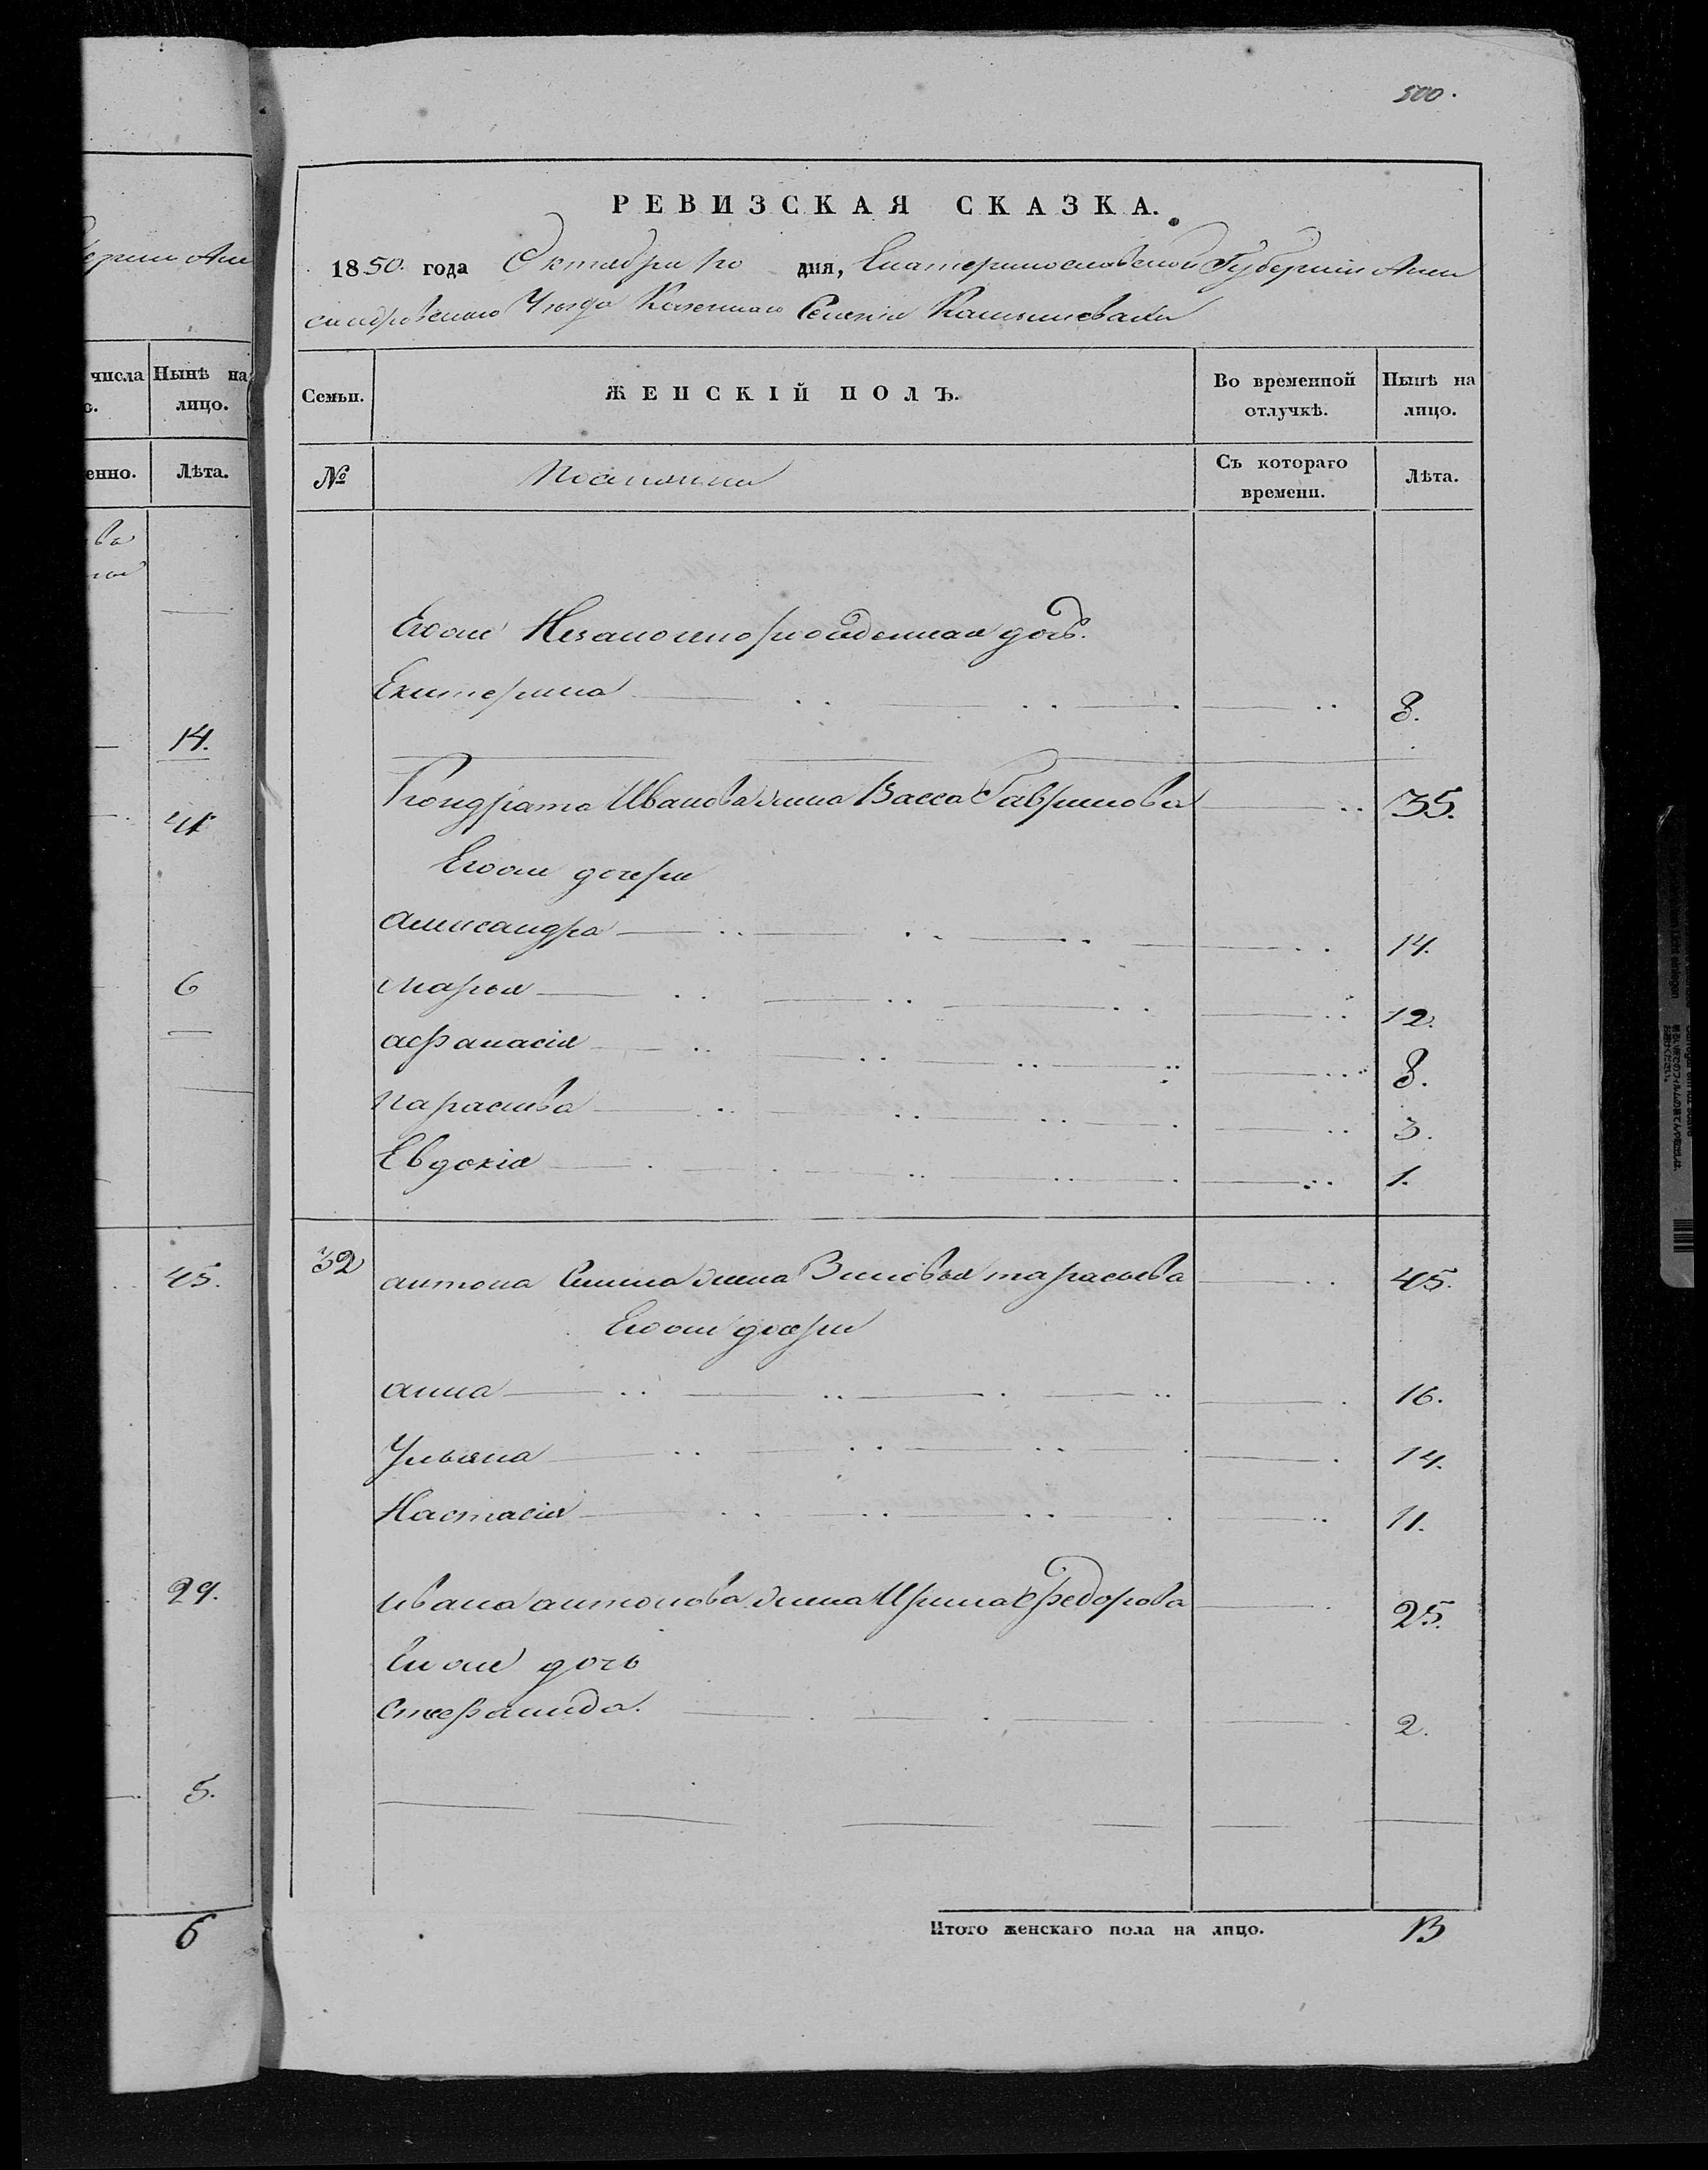 500.
РЕВИЗСКАЯ СКАЗКА.
1850. года Октября 10 дня, Екатеринославской Губернии Алек
сандровскаго Уезда Казеннаго Селения
числа Нынѣ на
лицо.
енно. Лѣта.
14.
6
45.
29.
5.
6
Семьи. ЖЕНСКІЙ ПОЛЪ. Во временной отлучкѣ. Нынѣ на лицо.
№ Поселянки Съ котораго времени. Лѣта.
Егоже Незаконнорожденная дочь.
Екатерина 8.
Кондрата Иванова жена Васса Гаврилова 35.
Егоже дочери
александра 14.
марья 12.
афанасія 8.
параскева 3.
Евдокія 1.
32 антона жена Зиновья тарасьева 45.
Егоже дочери
анна 16.
Ульяна 14.
Настасія 11.
ивана антонова жена Ирина Федорова 25.
Егоже дочь
Стефанида. 2.
Итого женскаго пола на лицо. 13